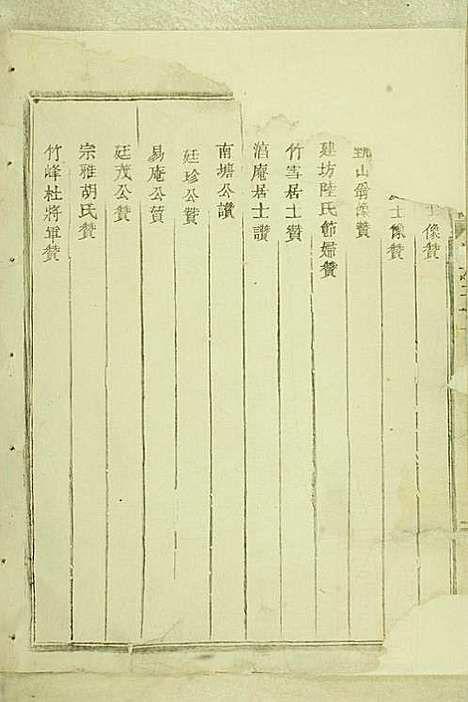 像贊
士像贊
山翁像贊
建坊陸氏節婦贊
竹雪居士贊
酒庵居士讚
南塘公讚
廷珍公贊
易庵公贊
廷茂公贊
宗雅胡氏贊
竹峰杜將軍贊